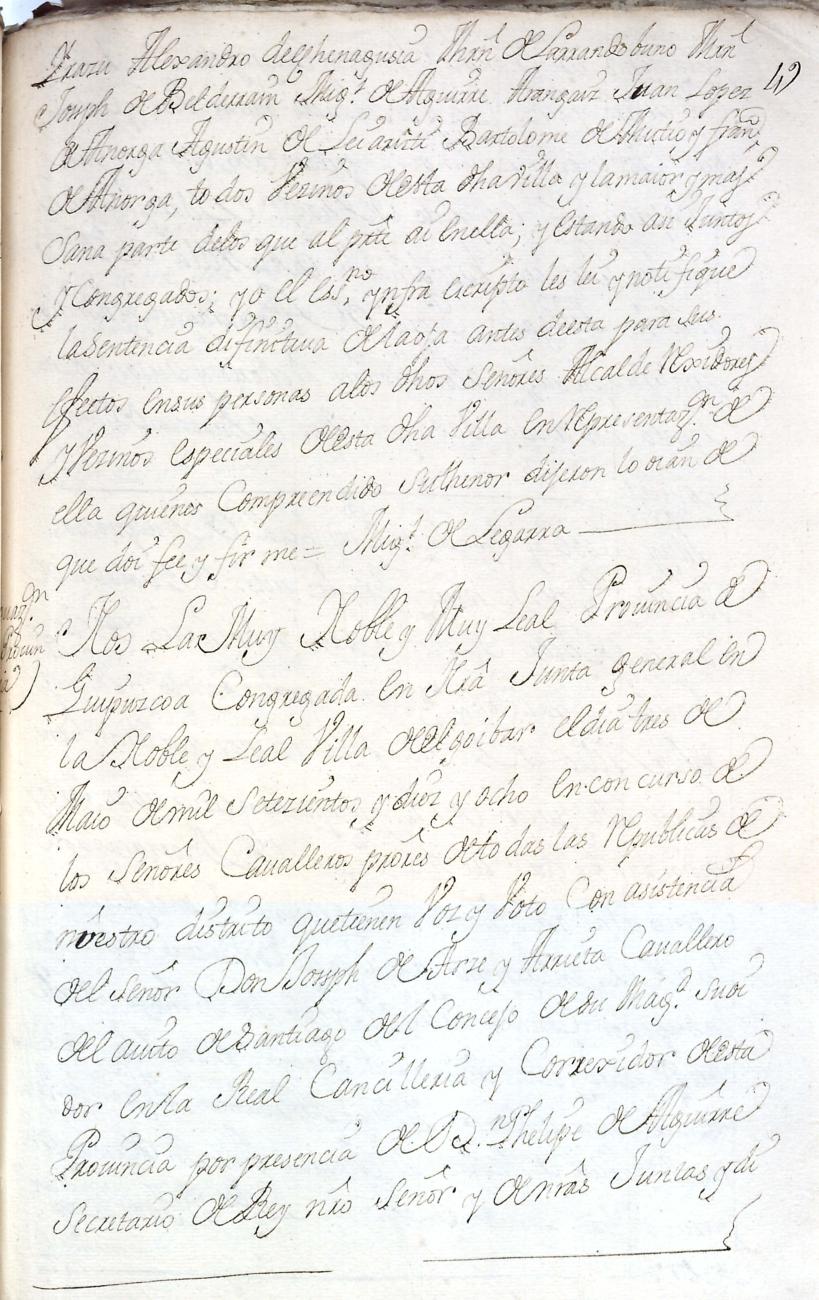 Yrazu Alexandro de Echenagusia Mrn de Larrandobuno Mrn
Joseph de Belderrain Migl de Aguirre Arangaiz Juan Lopez
49
de Anorga Agustin de Leiaristi Bartolome de Mutio y fran
de Anorga, todos Vezinos desta dha villa y la maior y mas
Sana parte delos que al pnte ai enella; y estando asi Juntos
y Congregados; yo el essno ynfra escripto les lei y notifique
la Sentencia difinitiua de la oja antes desta para sus
efectos en sus personas alos dhos Señores Alcalde Rexidores
y Vezinos especiales desta dha Villa en Representazon de
ella quienes Comprendido su thenor dijeron lo oian de
que doi fee y firme = Migl de Legarra
Nos La Muy Noble y Muy Leal Prouincia de
Guipuzcoa Congregada en Nra Junta general en
la Noble y Leal Villa de Elgoibar el dia tres de
Maio de mil Setezientos y diez y ocho en concurso de
los Señores Caualleros prores de todas las Republicas de
nuestro distrito que tienen Voz y Voto Con asistencia
del Señor Don Joseph de Arze y Arrieta Cauallero
del auito de Santiago del Consejo de su Magd Suoi
dor en la Real Cancilleria y Correxidor desta
Prouincia por presencia de Dn Phelipe de Aguirre
Secretario de Rey nro Señor y de nras Juntas y di